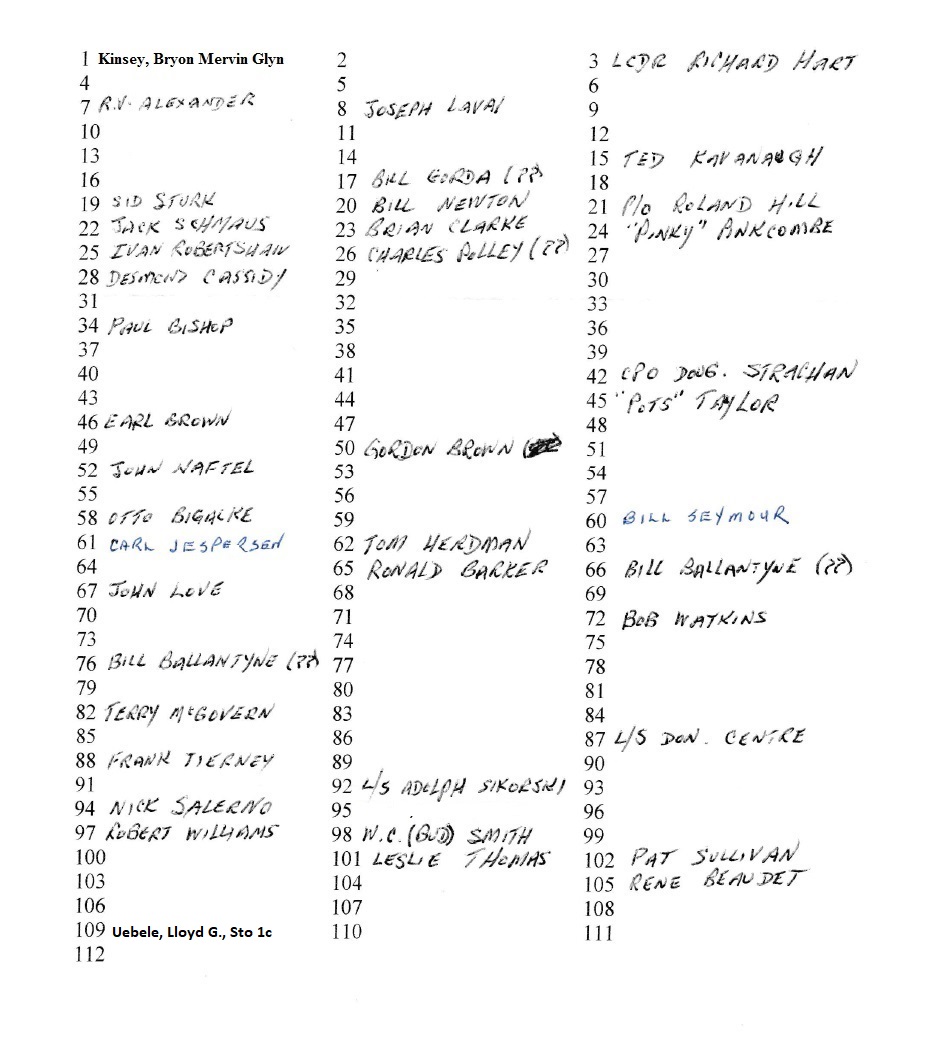 1 Kinsey, Bryon Mervin Glyn 2 3 LCDR RICHARD HART
4 5 6
7 R.V. ALEXANDER 8 JOSEPH LAVAL 9
10 11 12
13 14 15 TED KAVANAUGH
16 17 BILL GORDA (??) 18
19 SID STURK 20 BILL NEWTON 21 P/O ROLAND HILL
22 JACK SCHMAUS 23 BRIAN CLARKE 24 "PINKY" ANKCOMBE
25 IVAN ROBERTSHAW 26 CHARLES POLLEY (??) 27
28 DESMOND CASSIDY 29 30
31 32 33
34 PAUL BISHOP 35 36
37 38 39
40 41 42 CPO DOUG. STRACHAN
43 44 45 "POTS" TAYLOR
46 EARL BROWN 47 48
49 50 GORDON BROWN 51
52 JOHN NAFTEL 53 54
55 56 57
58 OTTO BIGALKE 59 60 BILL SEYMOUR
61 CARL JESPERSEN 62 TOM HERDMAN 63
64 65 RONALD BARKER 66 BILL BALLANTYNE (??)
67 JOHN LOVE 68 69
70 71 72 BOB WATKINS
73 74 75
76 BILL BALLANTYNE (??) 77 78
79 80 81
82 TERRY McGOVERN 83 84
85 86 87 L/S DON. CENTRE
88 FRANK TIERNEY 89 90
91 92 L/S ADOLPH SIKORSKI 93
94 NICK SALERNO 95 96
97 ROBERT WILLIAMS 98 W.C. (BUD) SMITH 99
100 101 LESLIE THOMAS 102 PAT SULLIVAN
103 104 105 RENE BEAUDET
106 107 108
109 Uebele, Lloyd G., Sto 1c 110 111
112